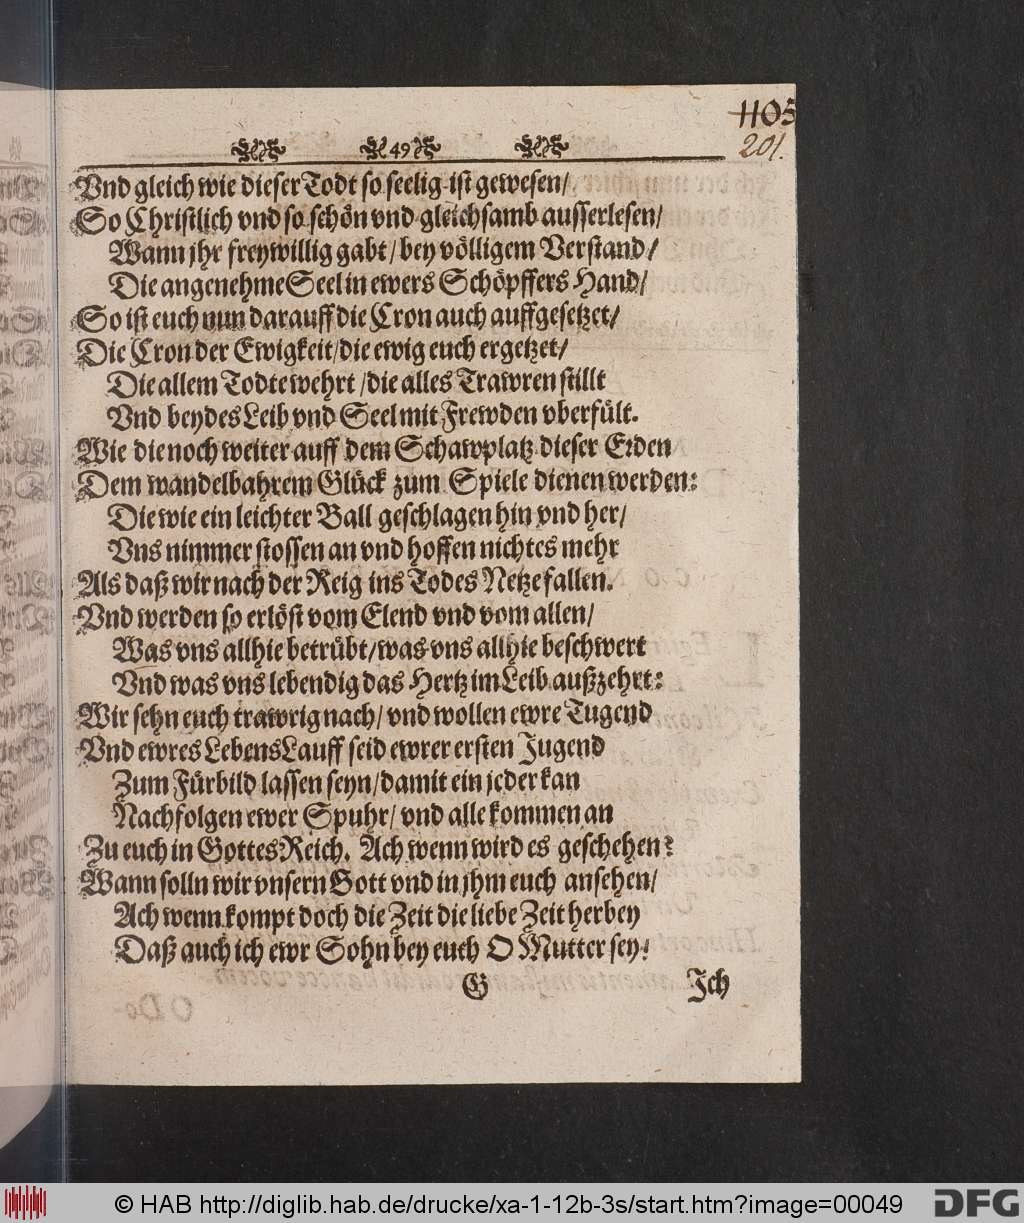 1105
49
201.
Vnd gleich wie dieser Todt so seelig ist gewesen/
So Christlich vnd so schön vnd gleichsamb ausserlesen/
Wann jhr freywillig gabt/ bey völligem Verstand/
Die angenehme Seel in ewers Schöpffers Hand/
So ist euch nun darauff die Cron auch auffgesetzet/
Die Cron der Ewigkeit/ die ewig euch ergetzet/
Die allem Todte wehrt/ die alles Trawren stillt
Vnd beydes Leib vnd Seel mit Frewden vberfült.
Wie die noch weiter auff dem Schawplatz dieser Erden
Dem wandelbahrem Glück zum Spiele dienen werden:
Die wie ein leichter Ball geschlagen hin vnd her/
Vns nimmer stossen an vnd hoffen nichtes mehr
Als daß wir nach der Reig ins Todes Netze fallen.
Vnd werden so erlöst vom Elend vnd vom allen/
Was vns allhie betrübt/ was vns allhie beschwert
Vnd was vns lebendig das Hertz im Leib außzehrt:
Wir sehn euch trawrig nach/ vnd wollen ewre Tugend
Vnd ewres Lebens Lauff seid ewrer ersten Jugend
Zum Fürbild lassen seyn/ damit ein jeder kan
Nachfolgen ewer Spuhr/ vnd alle kommen an
Zu euch in Gottes Reich. Ach wenn wird es geschehen?
Wann solln wir vnsern Gott vnd in jhm euch ansehen/
Ach wenn kompt doch die Zeit die liebe Zeit herbey
Daß auch ich ewr Sohn bey euch O Mutter sey!
G Jch
© HAB http://diglib.hab.de/drucke/xa-1-12b-3s/start.htm?image=00049 DFG